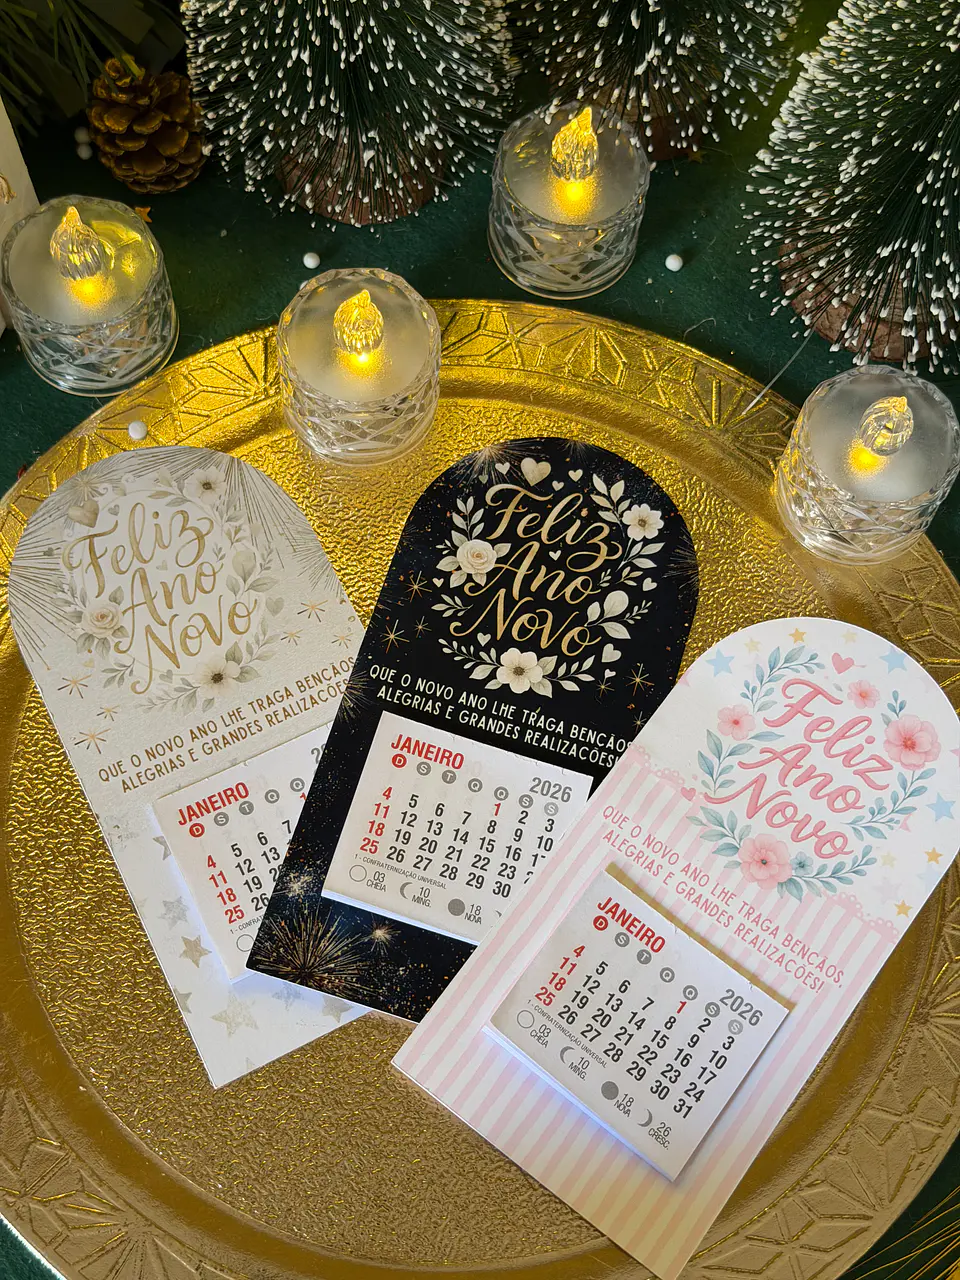 Feliz
Ano
Novo
QUE O NOVO ANO LHE TRAGA BENÇÃOS
ALEGRIAS E GRANDES REALIZAÇÕES
JANEIRO
D S T Q
5 6 7
4 12 13
11 19 20
18 26
25
Feliz
Ano
Novo
QUE O NOVO ANO LHE TRAGA BENÇÃOS
ALEGRIAS E GRANDES REALIZAÇÕES!
JANEIRO 2026
D S T Q Q S S
1 2 3
4 5 6 7 8 9 10
11 12 13 14 15 16 17
18 19 20 21 22 23
25 26 27 28 29 30
1 - CONFRATERNIZAÇÃO UNIVERSAL
03 CHEIA 10 MING. 18 NOVA
Feliz
Ano
Novo
QUE O NOVO ANO LHE TRAGA BENÇÃOS,
ALEGRIAS E GRANDES REALIZAÇÕES!
JANEIRO 2026
D S T Q Q S S
1 2 3
4 5 6 7 8 9 10
11 12 13 14 15 16 17
18 19 20 21 22 23 24
25 26 27 28 29 30 31
1 - CONFRATERNIZAÇÃO UNIVERSAL
03 CHEIA 10 MING. 18 NOVA 26 CRESC.